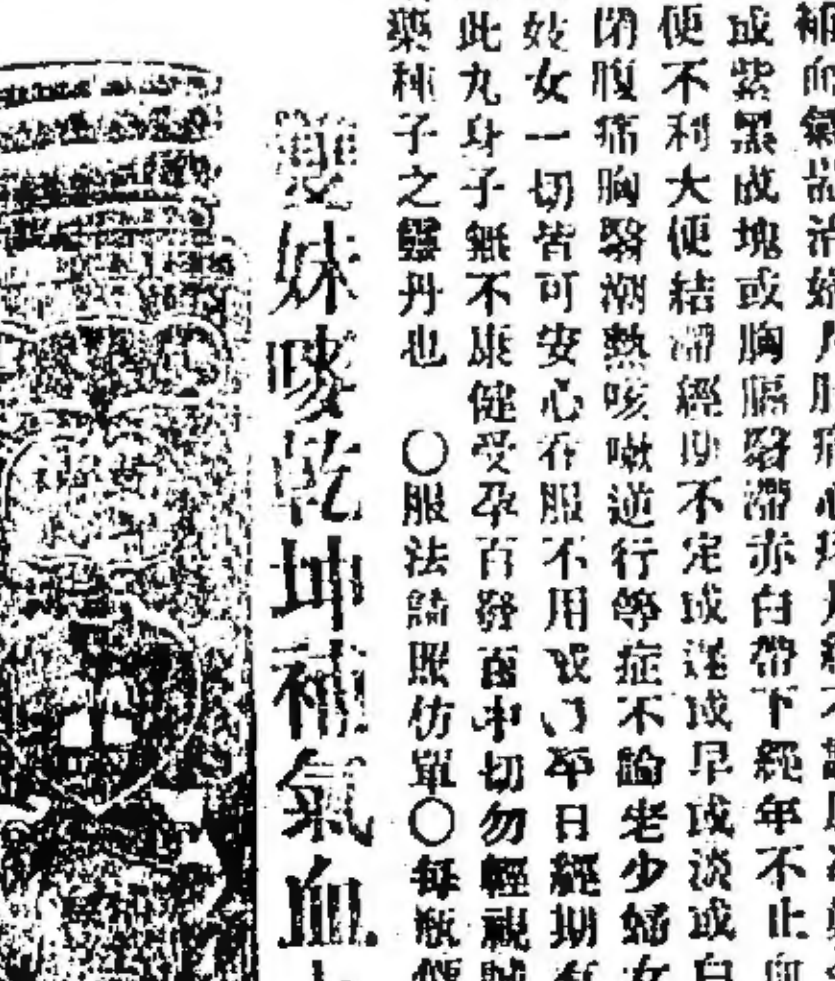 補血氣
或紫黑成塊或胸膈翳滯赤白帶下經年不止血
便不利大便結滯經期不定或遲或早或淡或白
閉腹痛胸翳潮熱咳嗽逆行等症不論老少婦女
妓女一切皆可安心吞服不用戒口平日經期有
此丸身子無不康健受孕百發百中切勿輕視誠
藥種子之靈丹也 〇服法請照仿單〇每瓶價
雙妹嘜乾坤補氣血